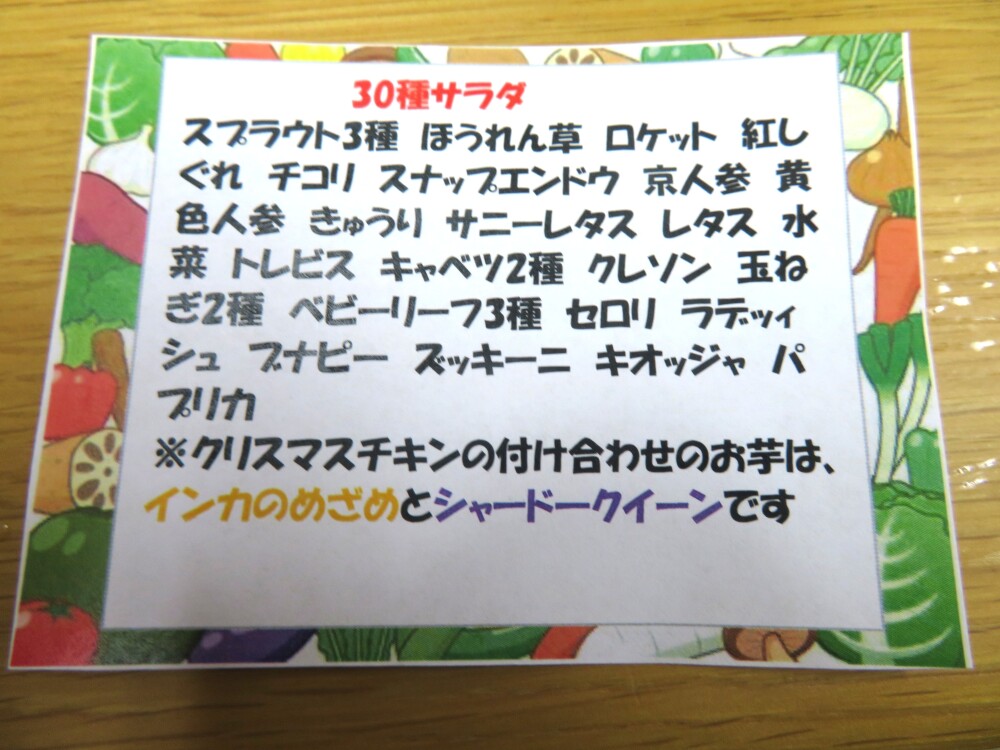 30種サラダ
スプラウト3種 ほうれん草 ロケット 紅し
ぐれ チコリ スナップエンドウ 京人参 黄
色人参 きゅうり サニーレタス レタス 水
菜 トレビス キャベツ2種 クレソン 玉ね
ぎ2種 ベビーリーフ3種 セロリ ラデッィ
シュ ブナピー ズッキーニ キオッジャ パ
プリカ
※クリスマスチキンの付け合わせのお芋は、
インカのめざめとシャドークイーンです